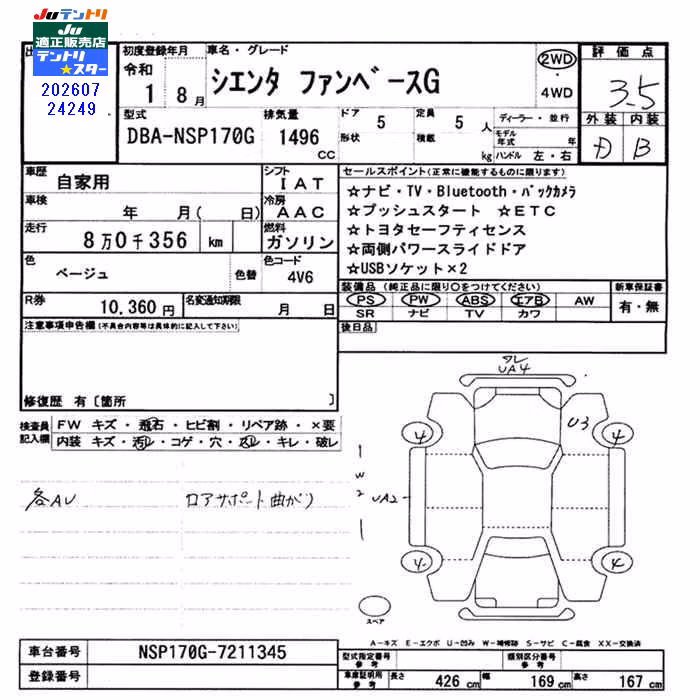 JUテントリ
JU
適正販売店
テントリ
★スター
202607
24249
初度登録年月
令和
1 8月
車名・グレード
シエンタ ファンベースG
2WD・
4WD
評価点
3.5
外装 内装
D B
型式
DBA-NSP170G
排気量
1496
cc
ドア 5
形状
定員 5 人
積載 kg
ディーラー・並行
モデル年式 年
ハンドル 左・右
車歴
自家用
シフト
IAT
車検
年 月( 日)
冷房
AAC
走行
8万0千356 km
燃料
ガソリン
色
ベージュ
色替
色コード
4V6
R券
10,360円
名変通知期限
月 日
セールスポイント(正常に機能するものに限ります)
☆ナビ・TV・Bluetooth・バックカメラ
☆プッシュスタート ☆ETC
☆トヨタセーフティセンス
☆両側パワースライドドア
☆USBソケット×2
装備品(純正品に限り○をつけてください)
PS PW ABS エアB AW
SR ナビ TV カワ
新車保証書
有・無
後日品
注意事項申告欄(不具合内容等は具体的に記入して下さい)
修復歴 有〔箇所 〕
検査員記入欄
FW キズ・飛石・ヒビ割・リペア跡・×要
内装 キズ・汚れ・コゲ・穴・スレ・キレ・破レ
各AU
ロアサポート曲がり
ワレ
UA4
U3
4
4
1
W
2
UA2
1
4
4
スペア
A-キズ E-エクボ U-凹み W-補修跡 S-サビ C-腐食 XX-交換済
車台番号
NSP170G-7211345
登録番号
型式指定番号
参考
類別区分番号
参考
車庫証明用
参考
長さ 426 cm
幅 169 cm
高さ 167 cm